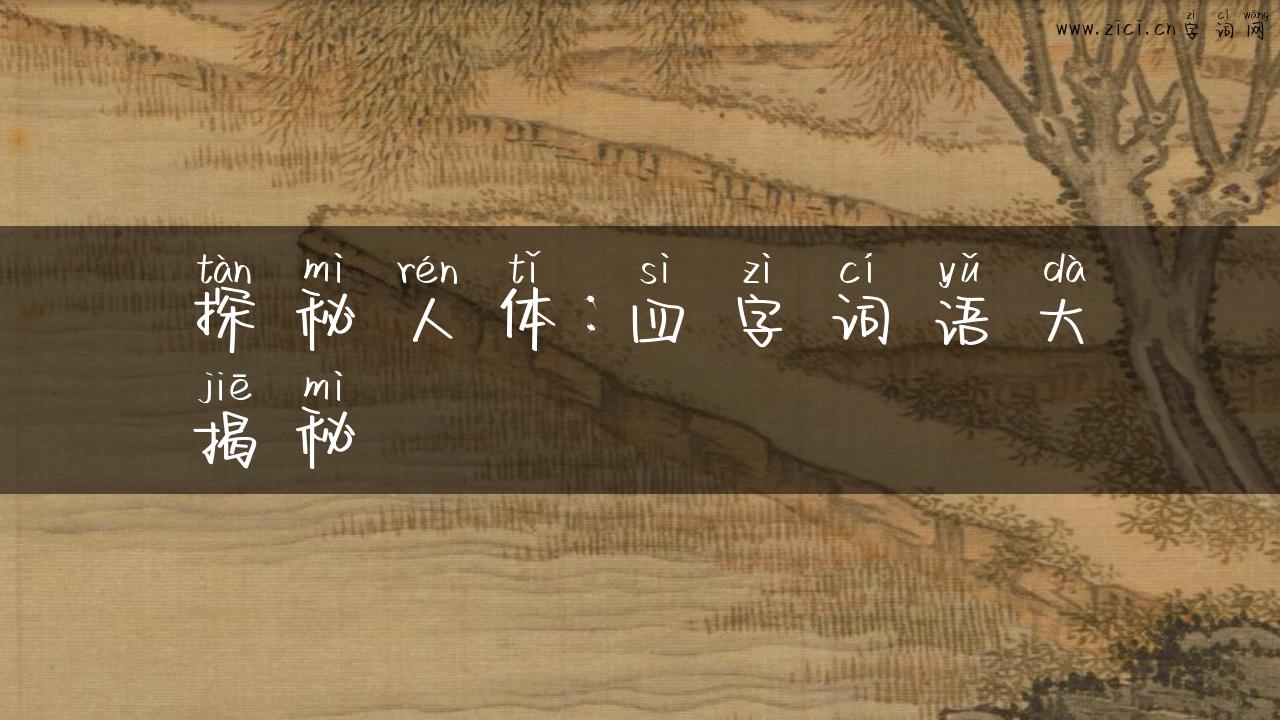 zì cí wǎng
www.zici.cn字词网
tàn mì rén tǐ sì zì cí yǔ dà
探秘人体:四字词语大
jiē mì
揭秘